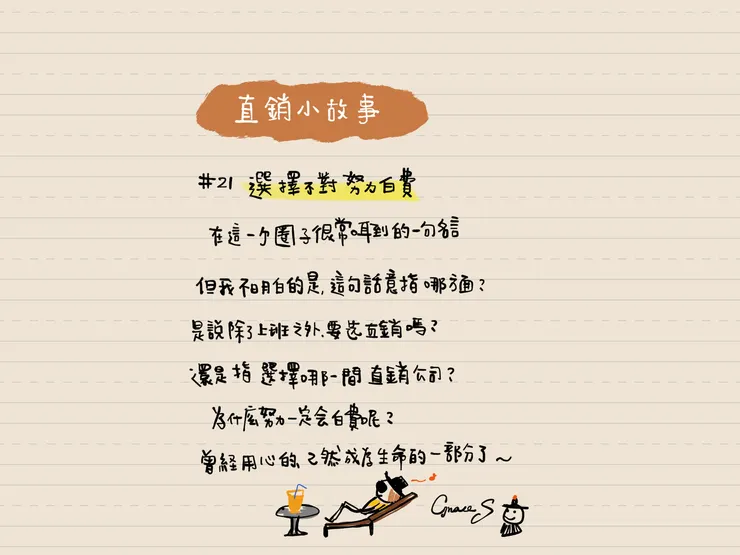 直銷小故事
#21 選擇不對努力白費
在這一个圈子很常耳到的一句名言
但我不明白的是,這句話意指哪方面?
是說除了上班之外、要選直銷嗎?
還是指選擇哪一間直銷公司?
為什么努力一定会白費呢?
曾經用心的、已然成為生命的一部分了~
Grace S